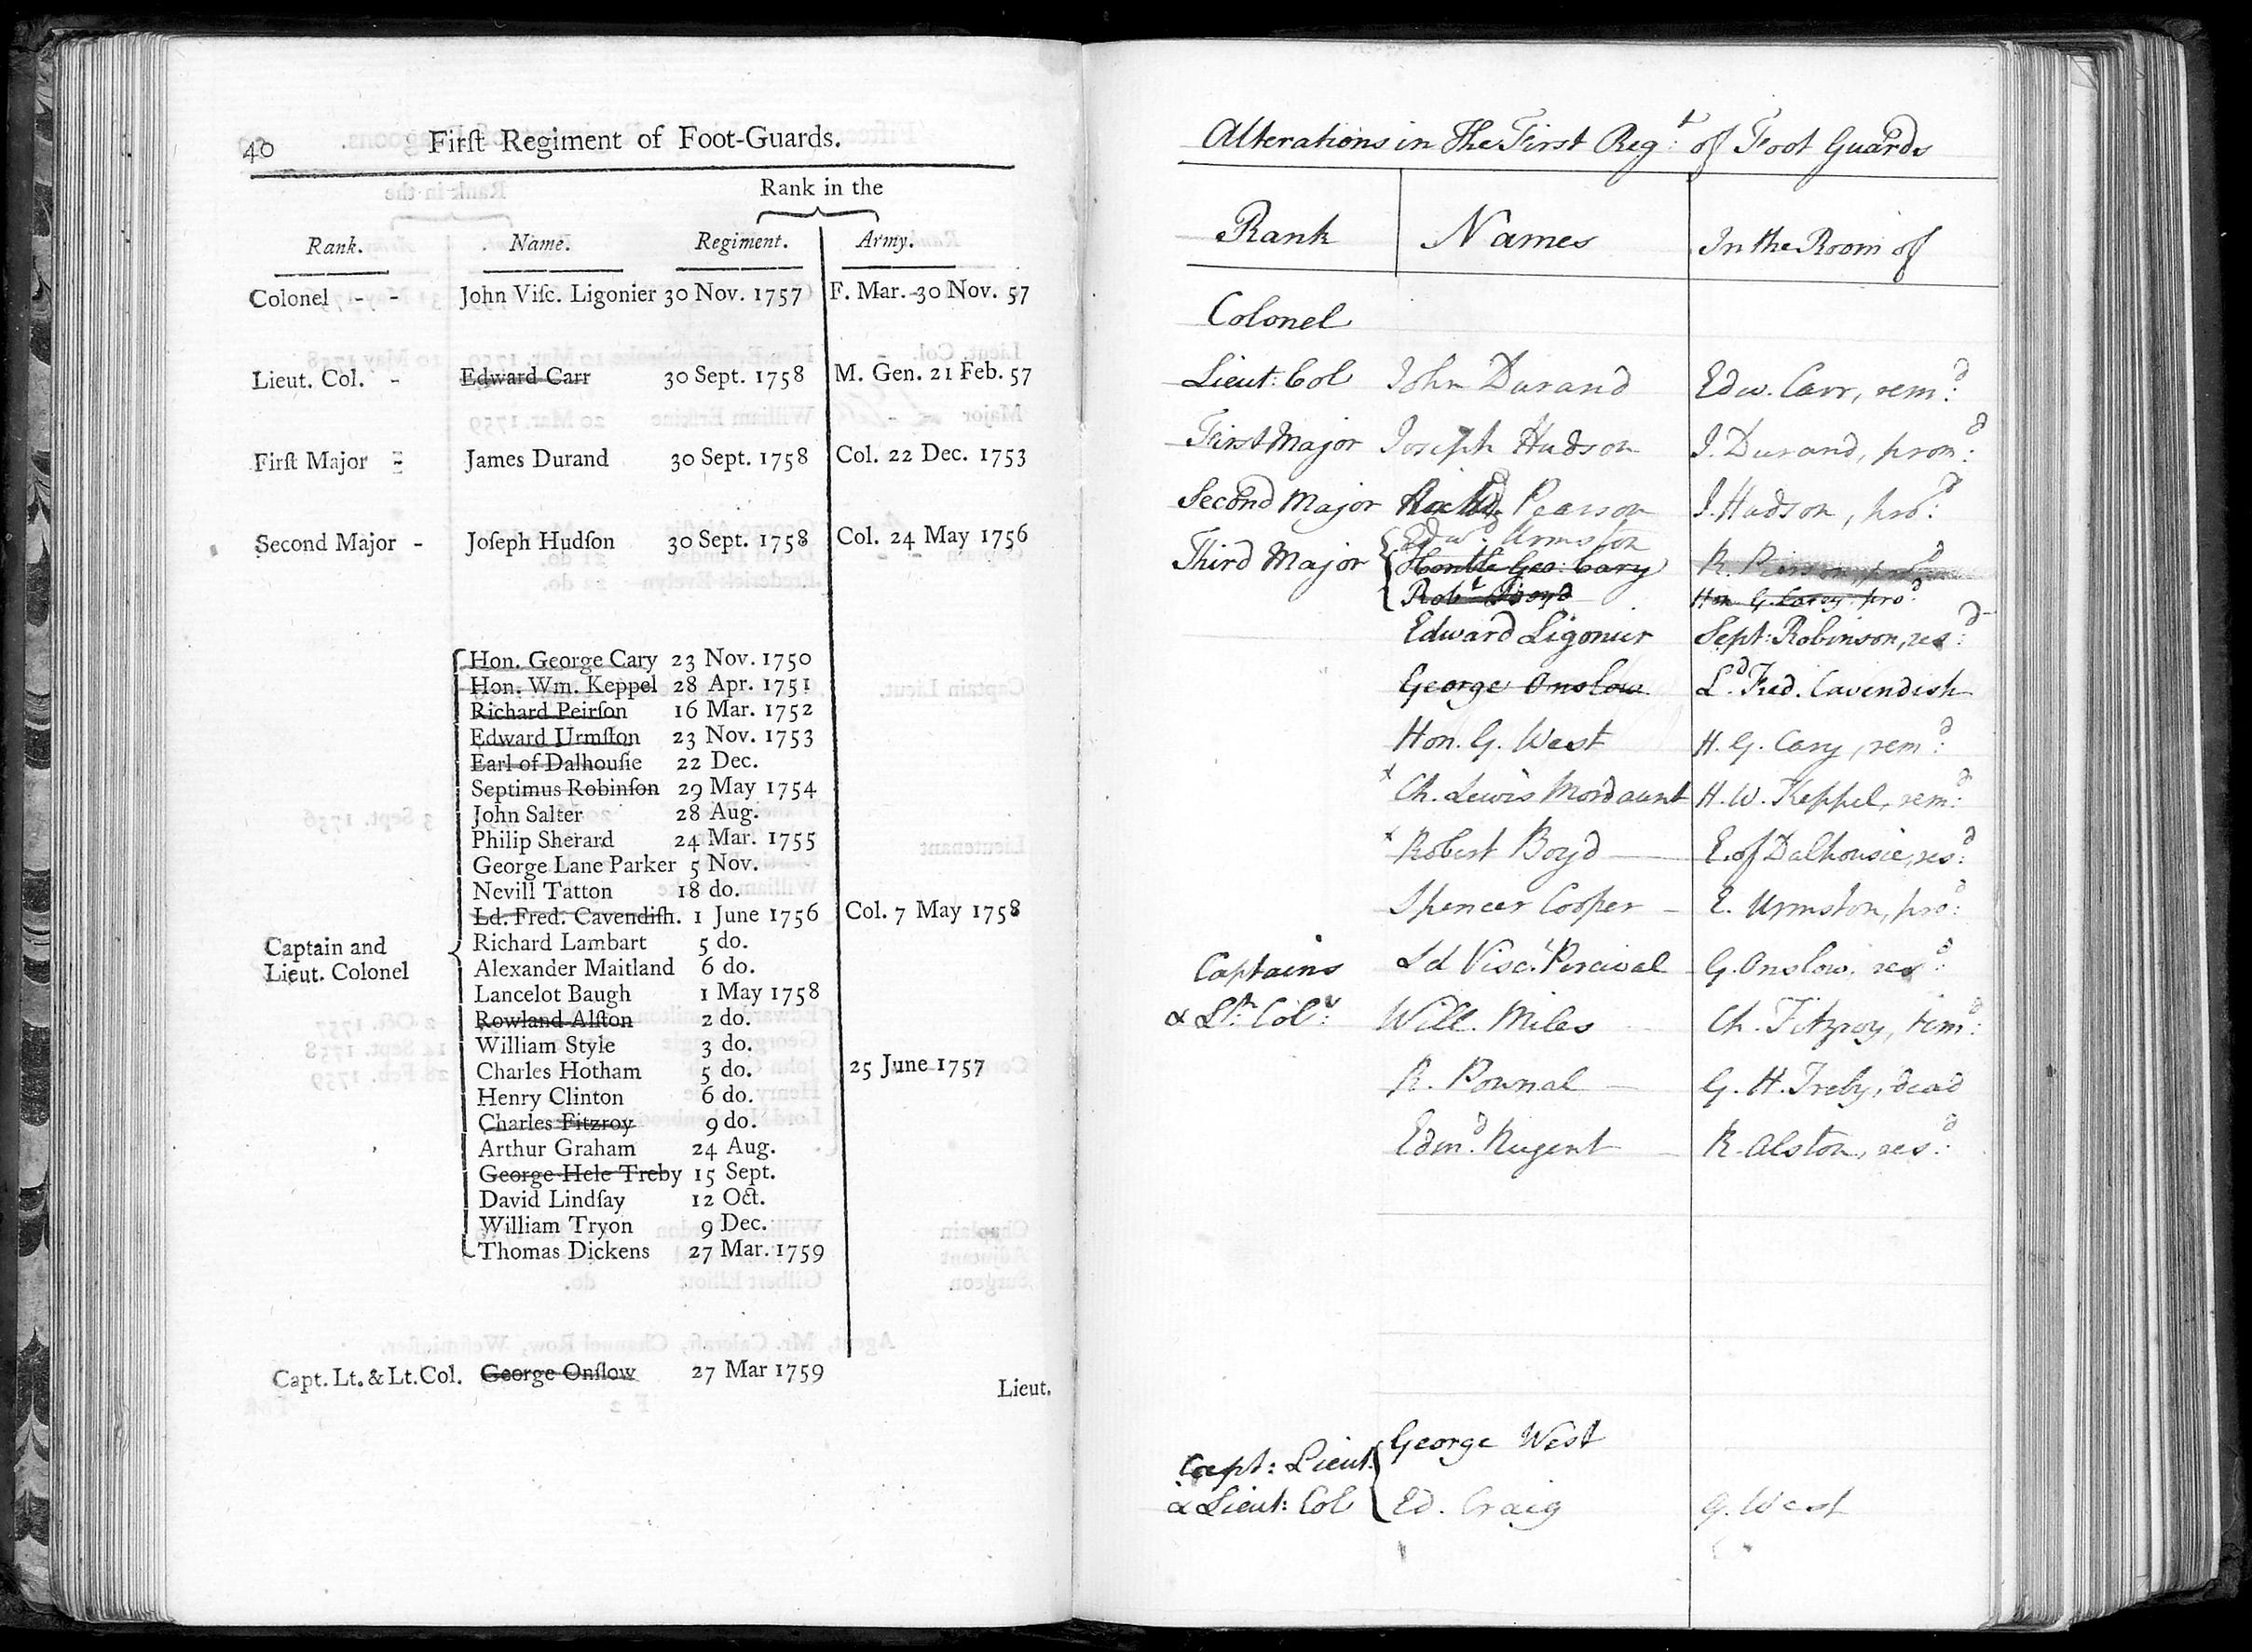 40 Firſt Regiment of Foot-Guards.
Rank in the
Rank. Name. Regiment. Army.
Colonel - - John Viſc. Ligonier 30 Nov. 1757 F. Mar. 30 Nov. 57
Lieut. Col. - Edward Carr 30 Sept. 1758 M. Gen. 21 Feb. 57
Firſt Major - James Durand 30 Sept. 1758 Col. 22 Dec. 1753
Second Major - Joſeph Hudſon 30 Sept. 1758 Col. 24 May 1756
Hon. George Cary 23 Nov. 1750
Hon. Wm. Keppel 28 Apr. 1751
Richard Peirſon 16 Mar. 1752
Edward Urmſton 23 Nov. 1753
Earl of Dalhouſie 22 Dec.
Septimus Robinſon 29 May 1754
John Salter 28 Aug.
Philip Sherard 24 Mar. 1755
George Lane Parker 5 Nov.
Nevill Tatton 18 do.
Ld. Fred. Cavendiſh. 1 June 1756 Col. 7 May 1758
Captain and
Lieut. Colonel
Richard Lambart 5 do.
Alexander Maitland 6 do.
Lancelot Baugh 1 May 1758
Rowland Alſton 2 do.
William Style 3 do.
Charles Hotham 5 do. 25 June 1757
Henry Clinton 6 do.
Charles Fitzroy 9 do.
Arthur Graham 24 Aug.
George Hele Treby 15 Sept.
David Lindſay 12 Oct.
William Tryon 9 Dec.
Thomas Dickens 27 Mar. 1759
Capt. Lt. & Lt. Col. George Onſlow 27 Mar 1759
Lieut.
Alterations in The First Regt: of Foot Guards
Rank Names In the Room of
Colonel
Lieut: Col John Durand Edw. Carr, remd:
First Major Joseph Hudson J. Durand, promd:
Second Major Pearson J. Hudson, prod:
Edwd. Urmston
Third Major Honble Geo: Cary R. Pierson, prod
Robt Boyd Hon G. Carey prod:
Edward Ligonier Sept: Robinson, resd:
George Onslow Ld. Fred. Cavendish
Hon. G. West H. G. Cary, remd:
x Ch. Lewis Mordaunt H. W. Keppel, remd:
x Robert Boyd E. of Dalhousie, resd:
Spencer Cooper E. Urmston, prod:
Captains Ld Visct. Percival G. Onslow, resd:
& Lt: Cols: Will. Miles Ch. Fitzroy, remd:
R. Pownal G. H. Treby, dead
Edmd. Nugent R. Alston, resd:
George West
Capt: Lieut.
& Lieut: Col Ed. Craig G. West